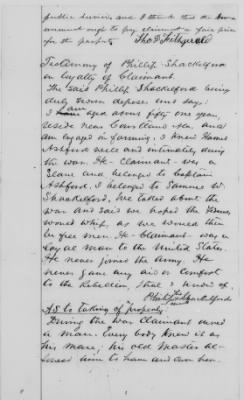 public service and I think that the Gov-
ernment ought to pay claimant a fair price
for the property Thos D Fitzgerald
Testimony of Phillip Shackelford
on loyalty of Claimant.
The said Phillip Shackelford being
duly sworn deposes and says:
I am aged about fifty one year,
reside near Courtland Ala. and
am engaged in farming. I knew
Ashford well and intimately during
the war. He - Claimant - was a
Slave and belonged to Captain
Ashford. I belonged to Samuel W.
Shackelford. We talked about the
war and said we hoped the
would whip, as we would then
be free men. He - Claimant - was a
Loyal man to the United States.
He never joined the Army. He
never gave any aid or comfort
to the Rebellion, that I knew of.
Phillip his mark Shackelford
As to taking of property
During the war Claimant owned
a mare. Every body knew it as
his mare, his old Master al-
lowed him to have and own her.